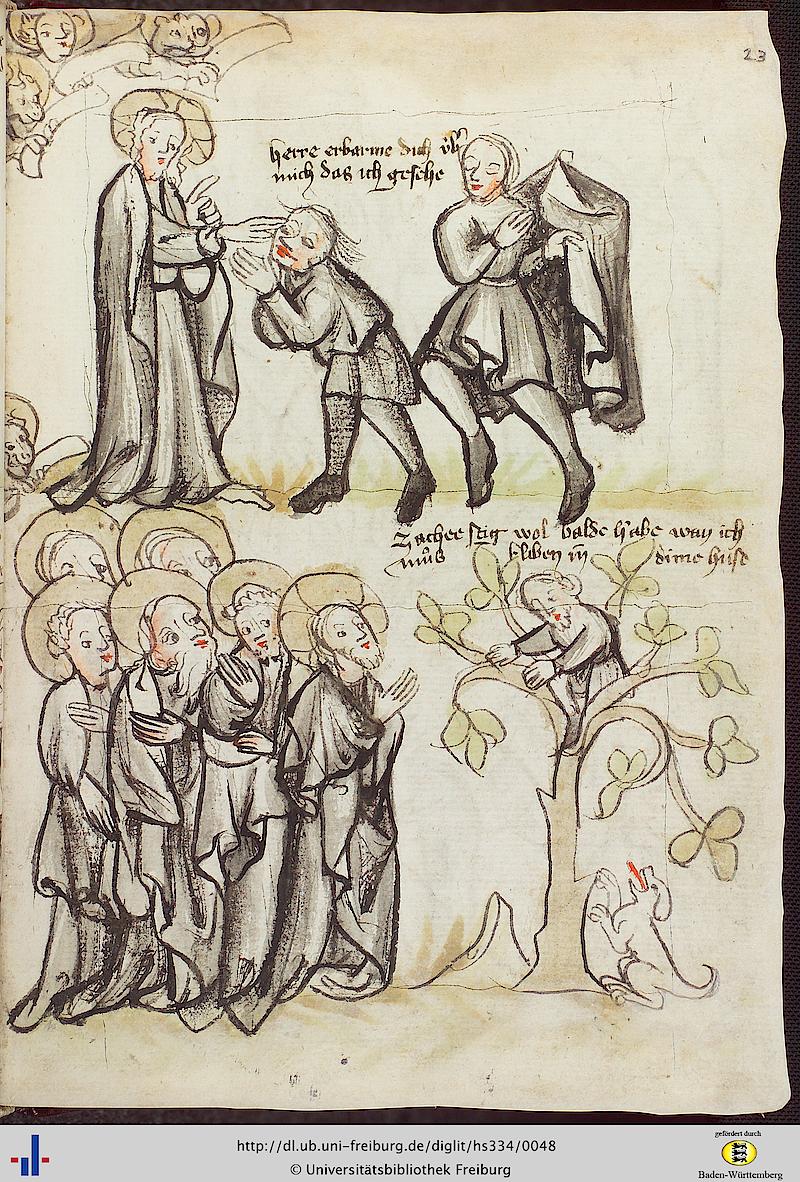 23
herre erbarme dich vb͛
mich das ich gesehe
Zachee stig wol balde h͛abe wan ich
mů̊s bliben in̄ dime huse
http://dl.ub.uni-freiburg.de/diglit/hs334/0048
© Universitätsbibliothek Freiburg
gefördert durch
Baden-Württemberg